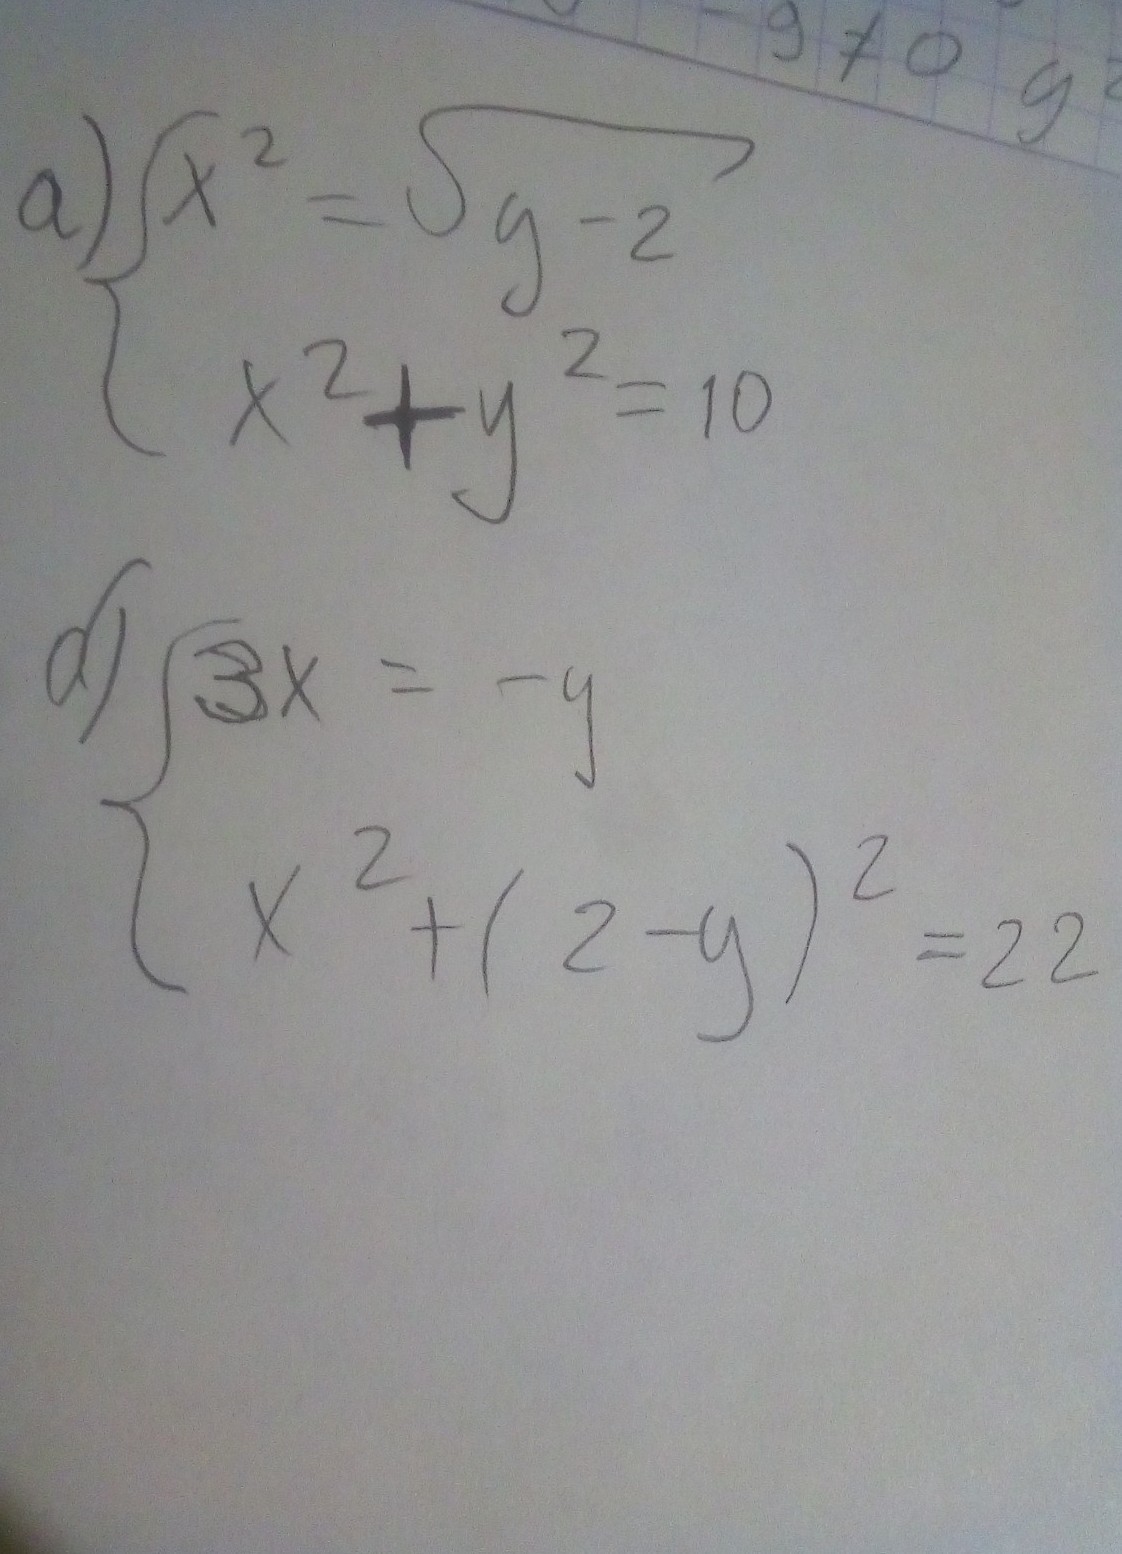 -970 y²
a) { x² = √(y-2)
x² + y² = 10
d) { 3x = -y
x² + (2-y)² = 22